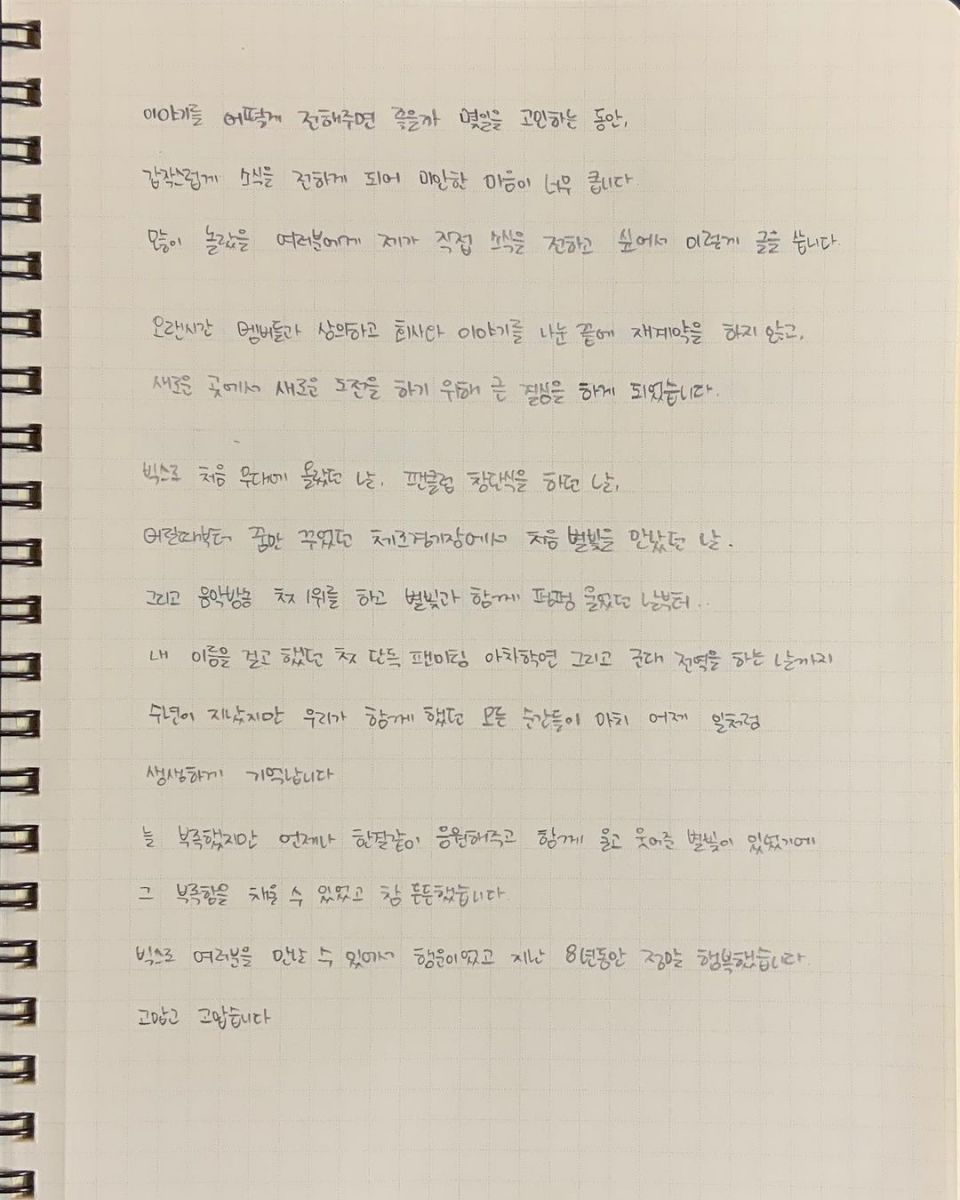 이야기를 어떻게 전해주면 좋을까 몇일을 고민하는 동안,
갑작스럽게 소식을 전하게 되어 미안한 마음이 너무 큽니다.
많이 놀랐을 여러분에게 제가 직접 소식을 전하고 싶어서 이렇게 글을 씁니다.
오랜시간 멤버들과 상의하고 회사와 이야기를 나눈 끝에 재계약을 하지 않고,
새로운 곳에서 새로운 도전을 하기 위해 큰 결심을 하게 되었습니다.
빅스로 처음 무대에 올랐던 날, 팬클럽 창단식을 하던 날,
어릴때부터 꿈만 꾸었던 체조경기장에서 처음 별빛을 만났던 날.
그리고 음악방송 첫 1위를 하고 별빛과 함께 펑펑 울었던 날부터..
내 이름을 걸고 했던 첫 단독 팬미팅 아차학연 그리고 군대 전역을 하는 날까지
수년이 지났지만 우리가 함께 했던 모든 순간들이 마치 어제 일처럼
생생하게 기억납니다
늘 부족했지만 언제나 한결같이 응원해주고 함께 울고 웃어준 별빛이 있었기에
그 부족함을 채울 수 있었고 참 든든했습니다.
빅스로 여러분을 만날 수 있어서 행운이었고 지난 8년동안 정말 행복했습니다.
고맙고 고맙습니다